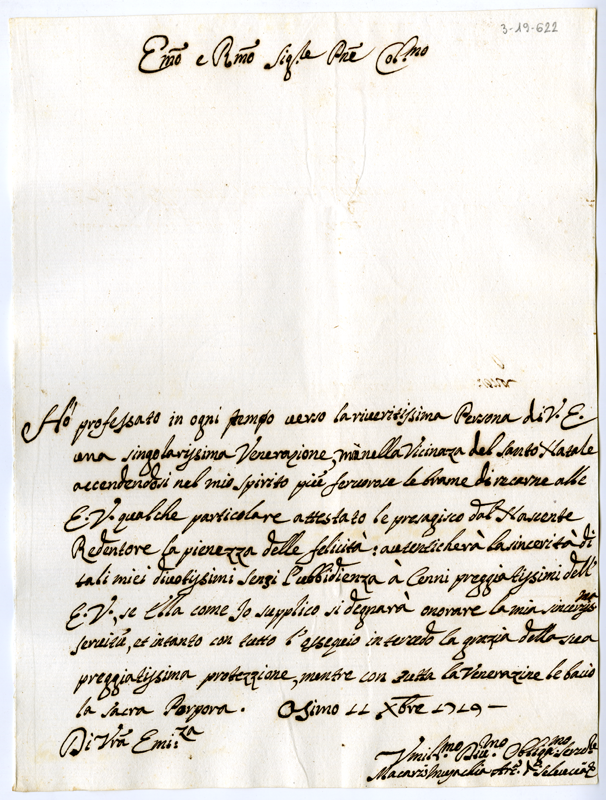 3-19-622
Em̃o e Rm̃o Sig.le Prẽ Col.mo
Hò professato in ogni tempo verso la riveritissima Persona di V. E.
una singolarissima Venerazione, mà nella Vicinaza del Santo Natale
accendendosi nel mio spirito più fervorose le brame di recarne alle
E. V. qualche particolare attestato le presagisco dal Nascente
Redentore la pienezza delle felicità: autenticherà la sincerità di
tali miei divotissimi sensi l'ubbidienza à Cenni preggiatissimi dell'
E. V., se Ella come Io supplico si degnarà onorare la mia
servitù, et intanto con tutto l'ossequio intercedo la grazia della sua
preggiatissima protezzione, mentre con tutta la Venerazine le bacio
la sacra Porpora. Osimo 11 Xbre 1719
Di Vrã Emi.za
Umil.mo Div.mo Obblig.mo